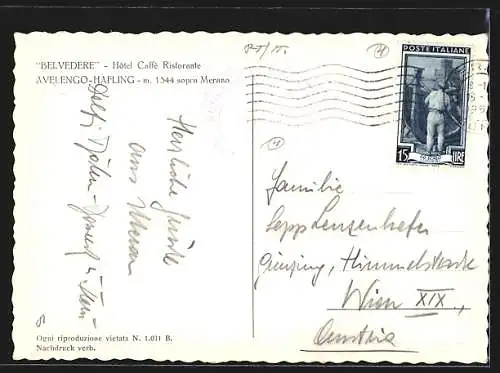 "BELVEDERE" - Hôtel Caffè Ristorante
AVELENGO-HAFLING - m. 1344 sopra Merano
Herzliche Grüsse
aus Meran
POSTE ITALIANE
15 LIRE
Familie
Sepp Lenzenhofer
Grinzing, Himmelstrasse
Wien XIX,
Austria
Ogni riproduzione vietata N. 1.011 B.
Nachdruck verb.